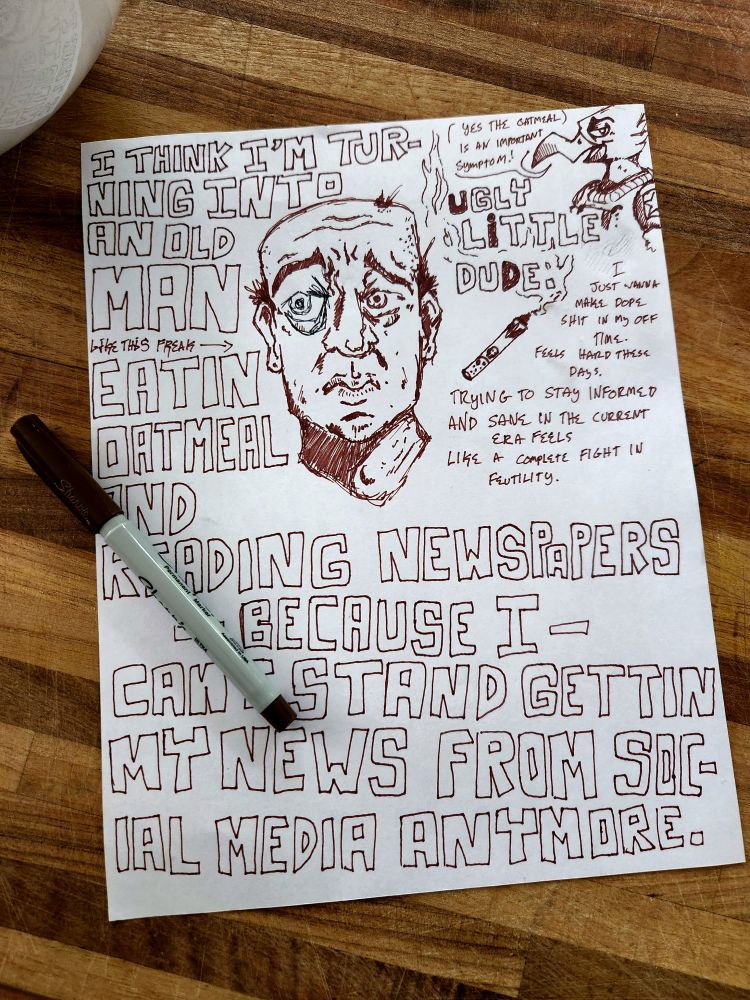 I THINK I'M TUR-
NING INTO
AN OLD
MAN
LIKE THIS FREAK →
EATIN
OATMEAL
AND
READING NEWSPAPERS
- BECAUSE I -
CAN'T STAND GETTIN
MY NEWS FROM SOC-
IAL MEDIA ANYMORE.
(YES THE OATMEAL)
IS AN IMPORTANT
SYMPTOM!
UGLY
LiTTLE
DUDE:
I
JUST WANNA
MAKE DOPE
SHIT IN MY OFF
TIME.
FEELS HARD THESE
DAYS.
TRYING TO STAY INFORMED
AND SANE IN THE CURRENT
ERA FEELS
LIKE A COMPLETE FIGHT IN
FEUTILITY.
Sharpie
Permanent Marker